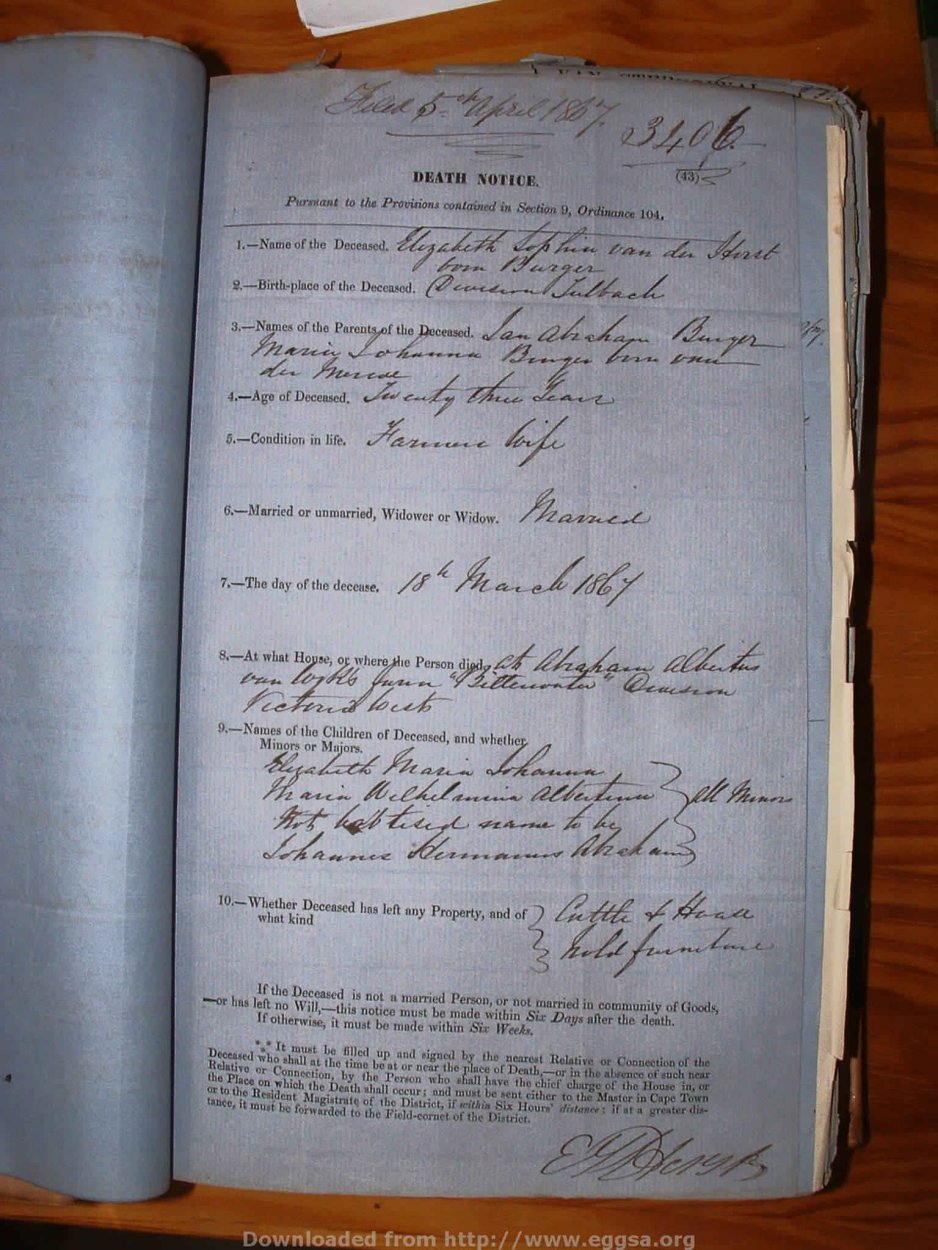 Filed 5th April 1867.
3406
(43)
DEATH NOTICE.
Pursuant to the Provisions contained in Section 9, Ordinance 104.
1.—Name of the Deceased. Elizabeth Sophia van der Horst
born Burger
2.—Birth-place of the Deceased. Division Tulbach
3.—Names of the Parents of the Deceased. Jan Abraham Burger
Maria Johanna Burger born van
der Merwe
4.—Age of Deceased. Twenty three Years
5.—Condition in life. Farmers Wife
6.—Married or unmarried, Widower or Widow. Married
7.—The day of the decease. 18th March 1867
8.—At what House, or where the Person died, At Abraham Albertus
van Wyks farm "Bitterwater" Division
Victoria West
9.—Names of the Children of Deceased, and whether
Minors or Majors.
Elizabeth Maria Johanna
Maria Wilhelmina Albertina all Minors
Not babtised name to be
Johannes Hermanus Abraham
10.—Whether Deceased has left any Property, and of Cattle & House
what kind hold furniture
If the Deceased is not a married Person, or not married in community of Goods,
—or has left no Will,—this notice must be made within Six Days after the death.
If otherwise, it must be made within Six Weeks.
*** It must be filled up and signed by the nearest Relative or Connection of the
Deceased who shall at the time be at or near the place of Death,—or in the absence of such near
Relative or Connection, by the Person who shall have the chief charge of the House in, or
the Place on which the Death shall occur; and must be sent either to the Master in Cape Town
or to the Resident Magistrate of the District, if within Six Hours' distance; if at a greater dis-
tance, it must be forwarded to the Field-cornet of the District.
Downloaded from http://www.eggsa.org